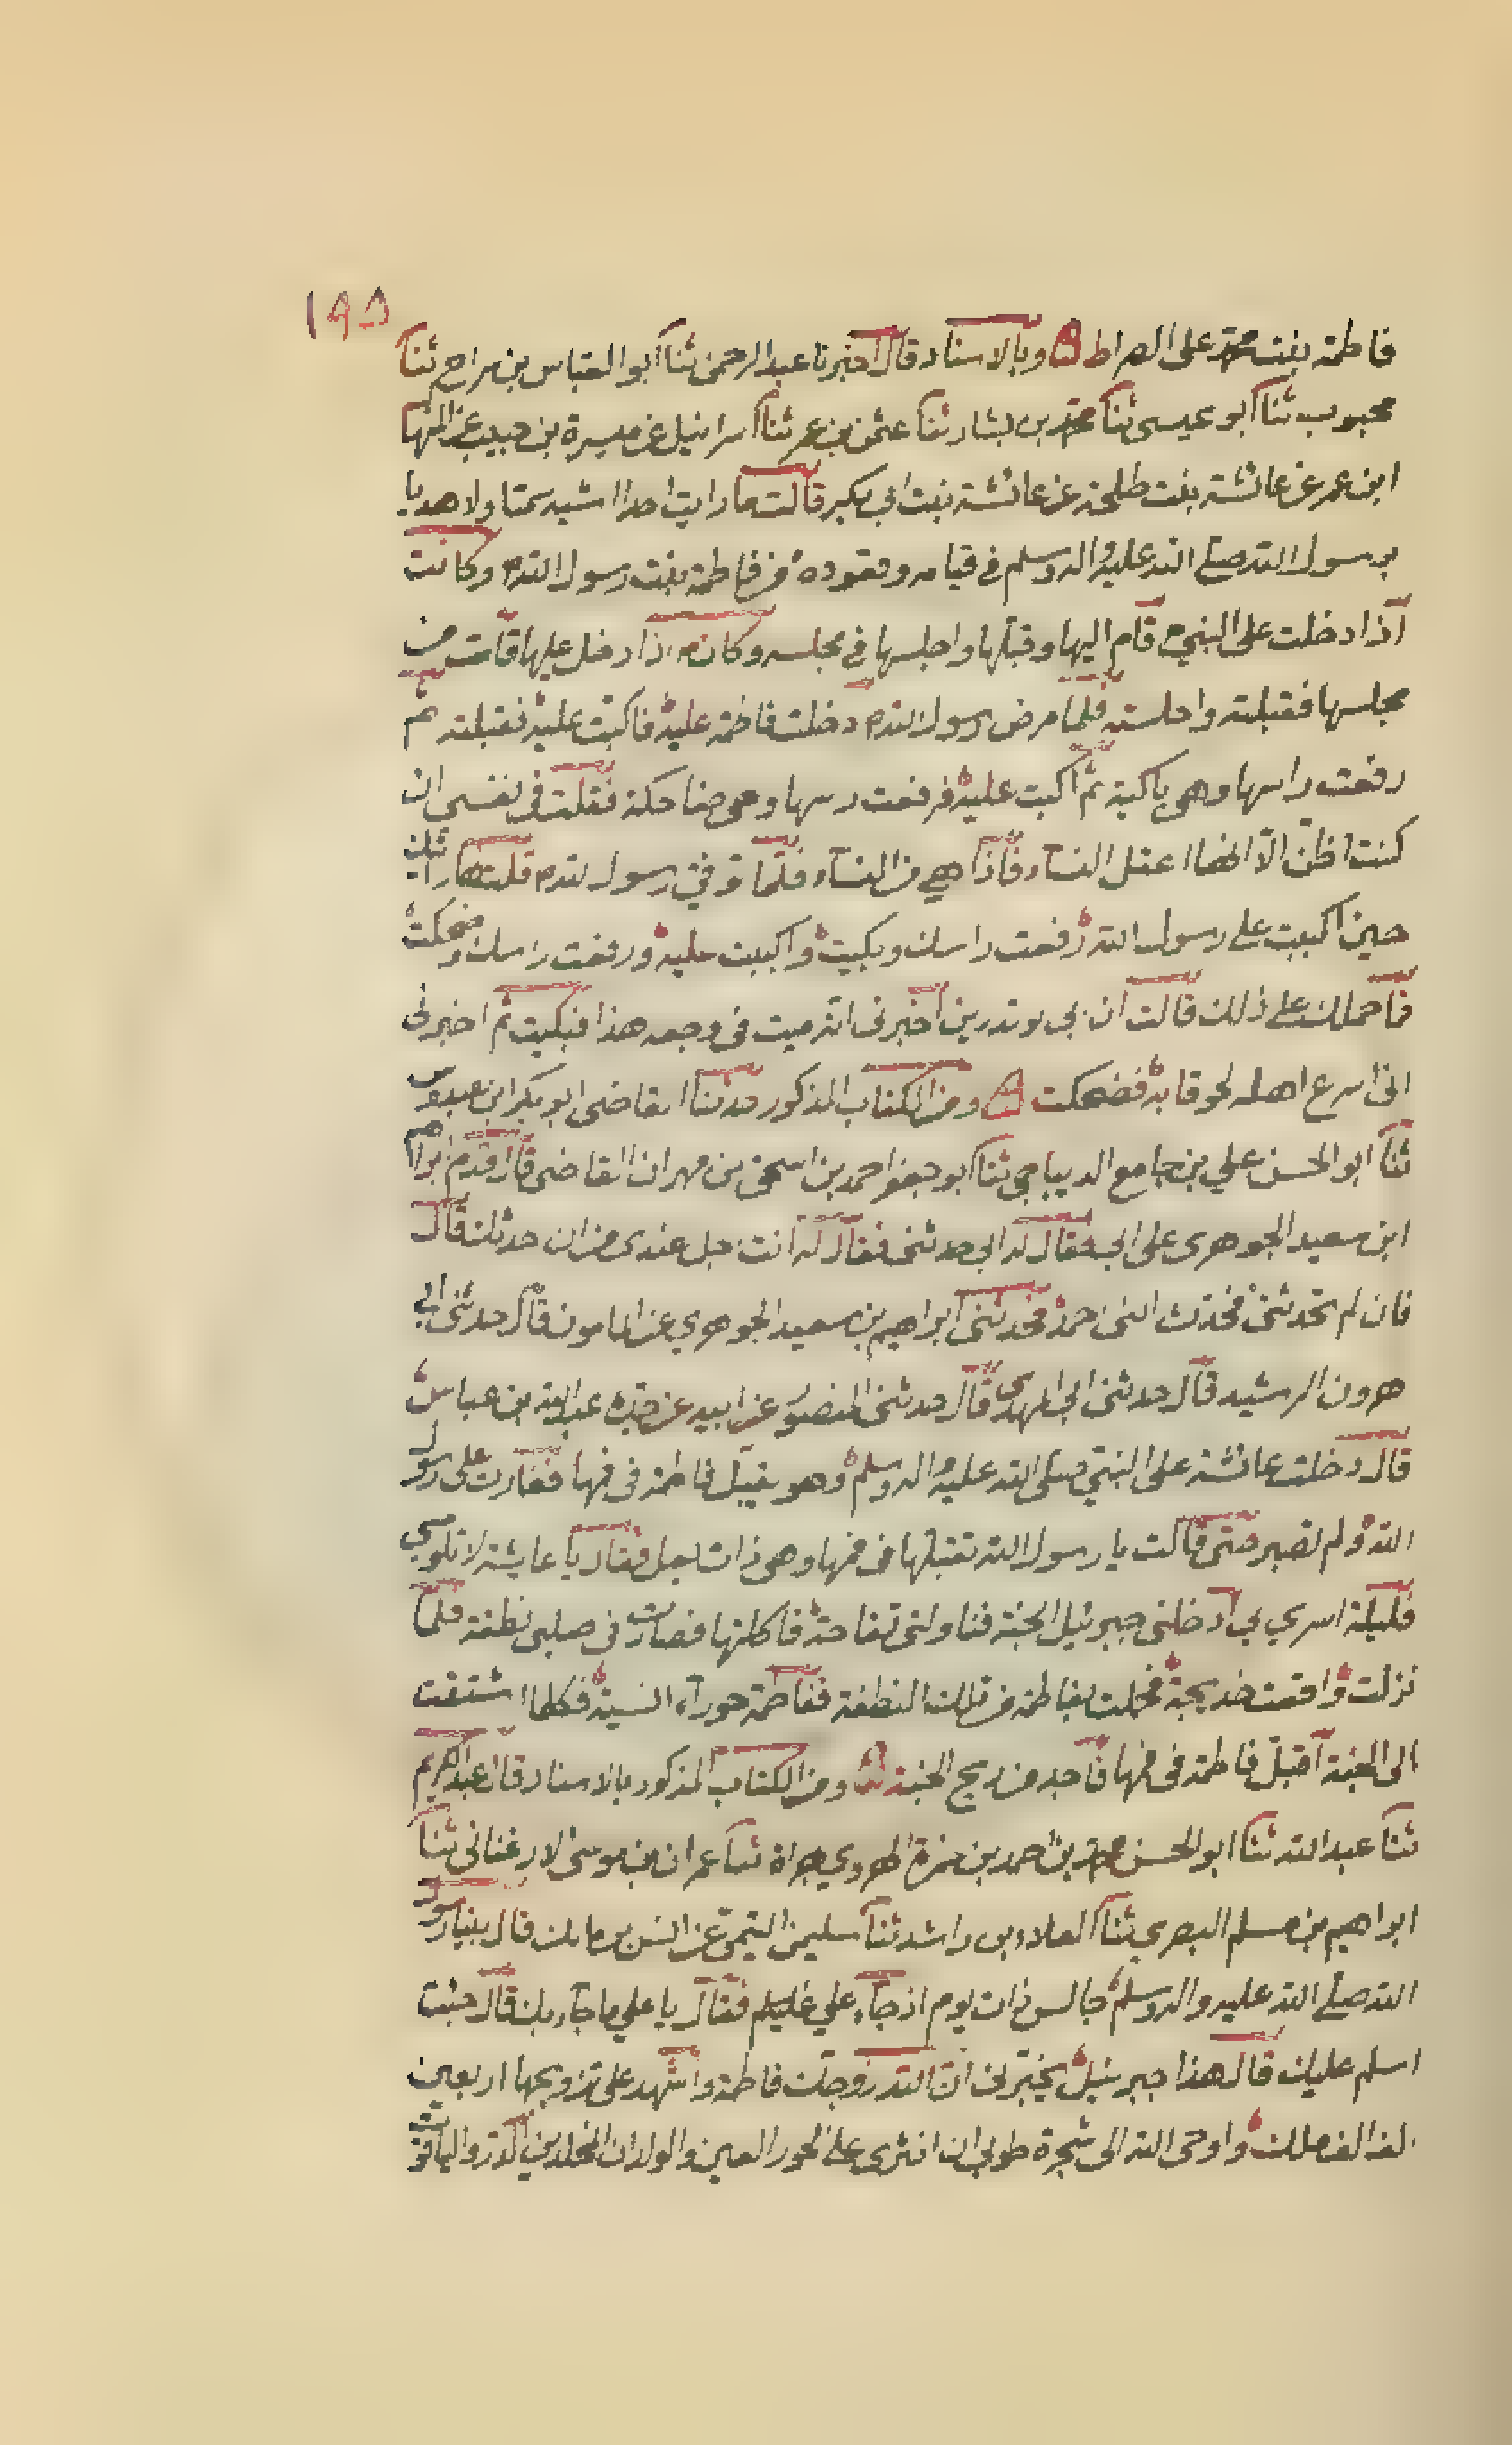 ١٩٥
فاطمة بنت محمد على الصراط وبالاسناد قال اخبرنا عبد الرحمن ثنا ابو العباس بن سراج ثنا
محبوب ثنا ابو عيسى ثنا محمد بن بشار ثنا عثمن بن عمر ثنا اسرائيل عن ميسرة بن حبيب عن المنها
ابن عمر عن عائشة بنت طلحة عن عائشة بنت ابي بكر قالت ما رايت احدا اشبه سمتا ولا هديا
برسول الله صلى الله عليه واله وسلم في قيامه وقعوده من فاطمة بنت رسول الله م وكانت
اذا دخلت على النبي م قام اليها وقبلها واجلسها في مجلسه وكان م اذا دخل عليها قامت من
مجلسها فقبلته واجلسته فلما مرض رسول الله م دخلت فاطمة عليه فاكبت عليه فقبلته ثم
رفعت راسها وهي باكية ثم اكبت عليه فرفعت رسها وهي ضاحكة فقلت في نفسي ان
كنت اظن الا انها اعقل النساء فاذا هي من النساء فلما توفي رسول لله م قلت لها رايتك
حين اكببت على رسول الله رفعت راسك وبكيت واكببت عليه ورفعت راسك وضحكت
فما حملك على ذلك قالت ان بي اخبرني انه ميت في وجعه هذا فبكيت ثم اخبرني
اني اسرع اهله لحوقا به فضحكت ومن الكتاب المذكور حدثنا القاضي ابو بكر ابن عبدوس
ثنا ابو الحسن علي بن جامع الديباجي ثنا ابو جعفر احمد بن اسحق بن مهران القاضي قال قدم ابراهيم
ابن سعيد الجوهري على ابي فقال له ابي حدثني فقال له انت اجل عندي من ان حدثك قال
فان لم تحدثني فحدث ابني احمد فحدثني ابراهيم بن سعيد الجوهري عن المامون قال حدثني ابي
هرون الرشيد قال حدثني ابي المهدي قال حدثني المنصور عن ابيه عن جده عبد الله بن عباس
قال دخلت عائشة على النبي صلى الله عليه واله وسلم وهو يقبل فاطمة في فمها فغارت على رسول
الله ولم تصبر حتى قالت يا رسول الله تقبلها في فمها وهي ذات بعل فقال يا عايشة لا تلومي
فليلة اسري بي ادخلني جبرئيل الجنة فناولني تفاحة فاكلتها فصارت في صلبي نطفة فلما
نزلت واقعت خديجة فحملت بفاطمة من تلك النطفة ففاطمة حوراء انسية فكلما اشتقت
الى الجنة اقبل فاطمة في فمها فاجد من ريح الجنة ومن الكتاب المذكور بالاسناد قال عبد الكريم
ثنا عبد الله ثنا ابو الحسن محمد بن احمد بن حمزة الهروي بهراة ثنا عمران بن موسى الارغناني ثنا
ابراهيم بن مسلم البصري ثنا العلاء بن راشد ثنا سليمن التيمي عن انس بن مالك قال بينا رسول
الله صلى الله عليه واله وسلم جالس ذات يوم اذ جاء علي فقال يا علي ما جاء بك قال جئت
اسلم عليك قال هذا جبرئيل يخبرني ان الله زوجك فاطمة واشهد على تزويجها اربعين
الف الف ملك واوحى الله الى شجرة طوبى ان انثري على الحور العين والولدان المخلدين الدر والياقوت